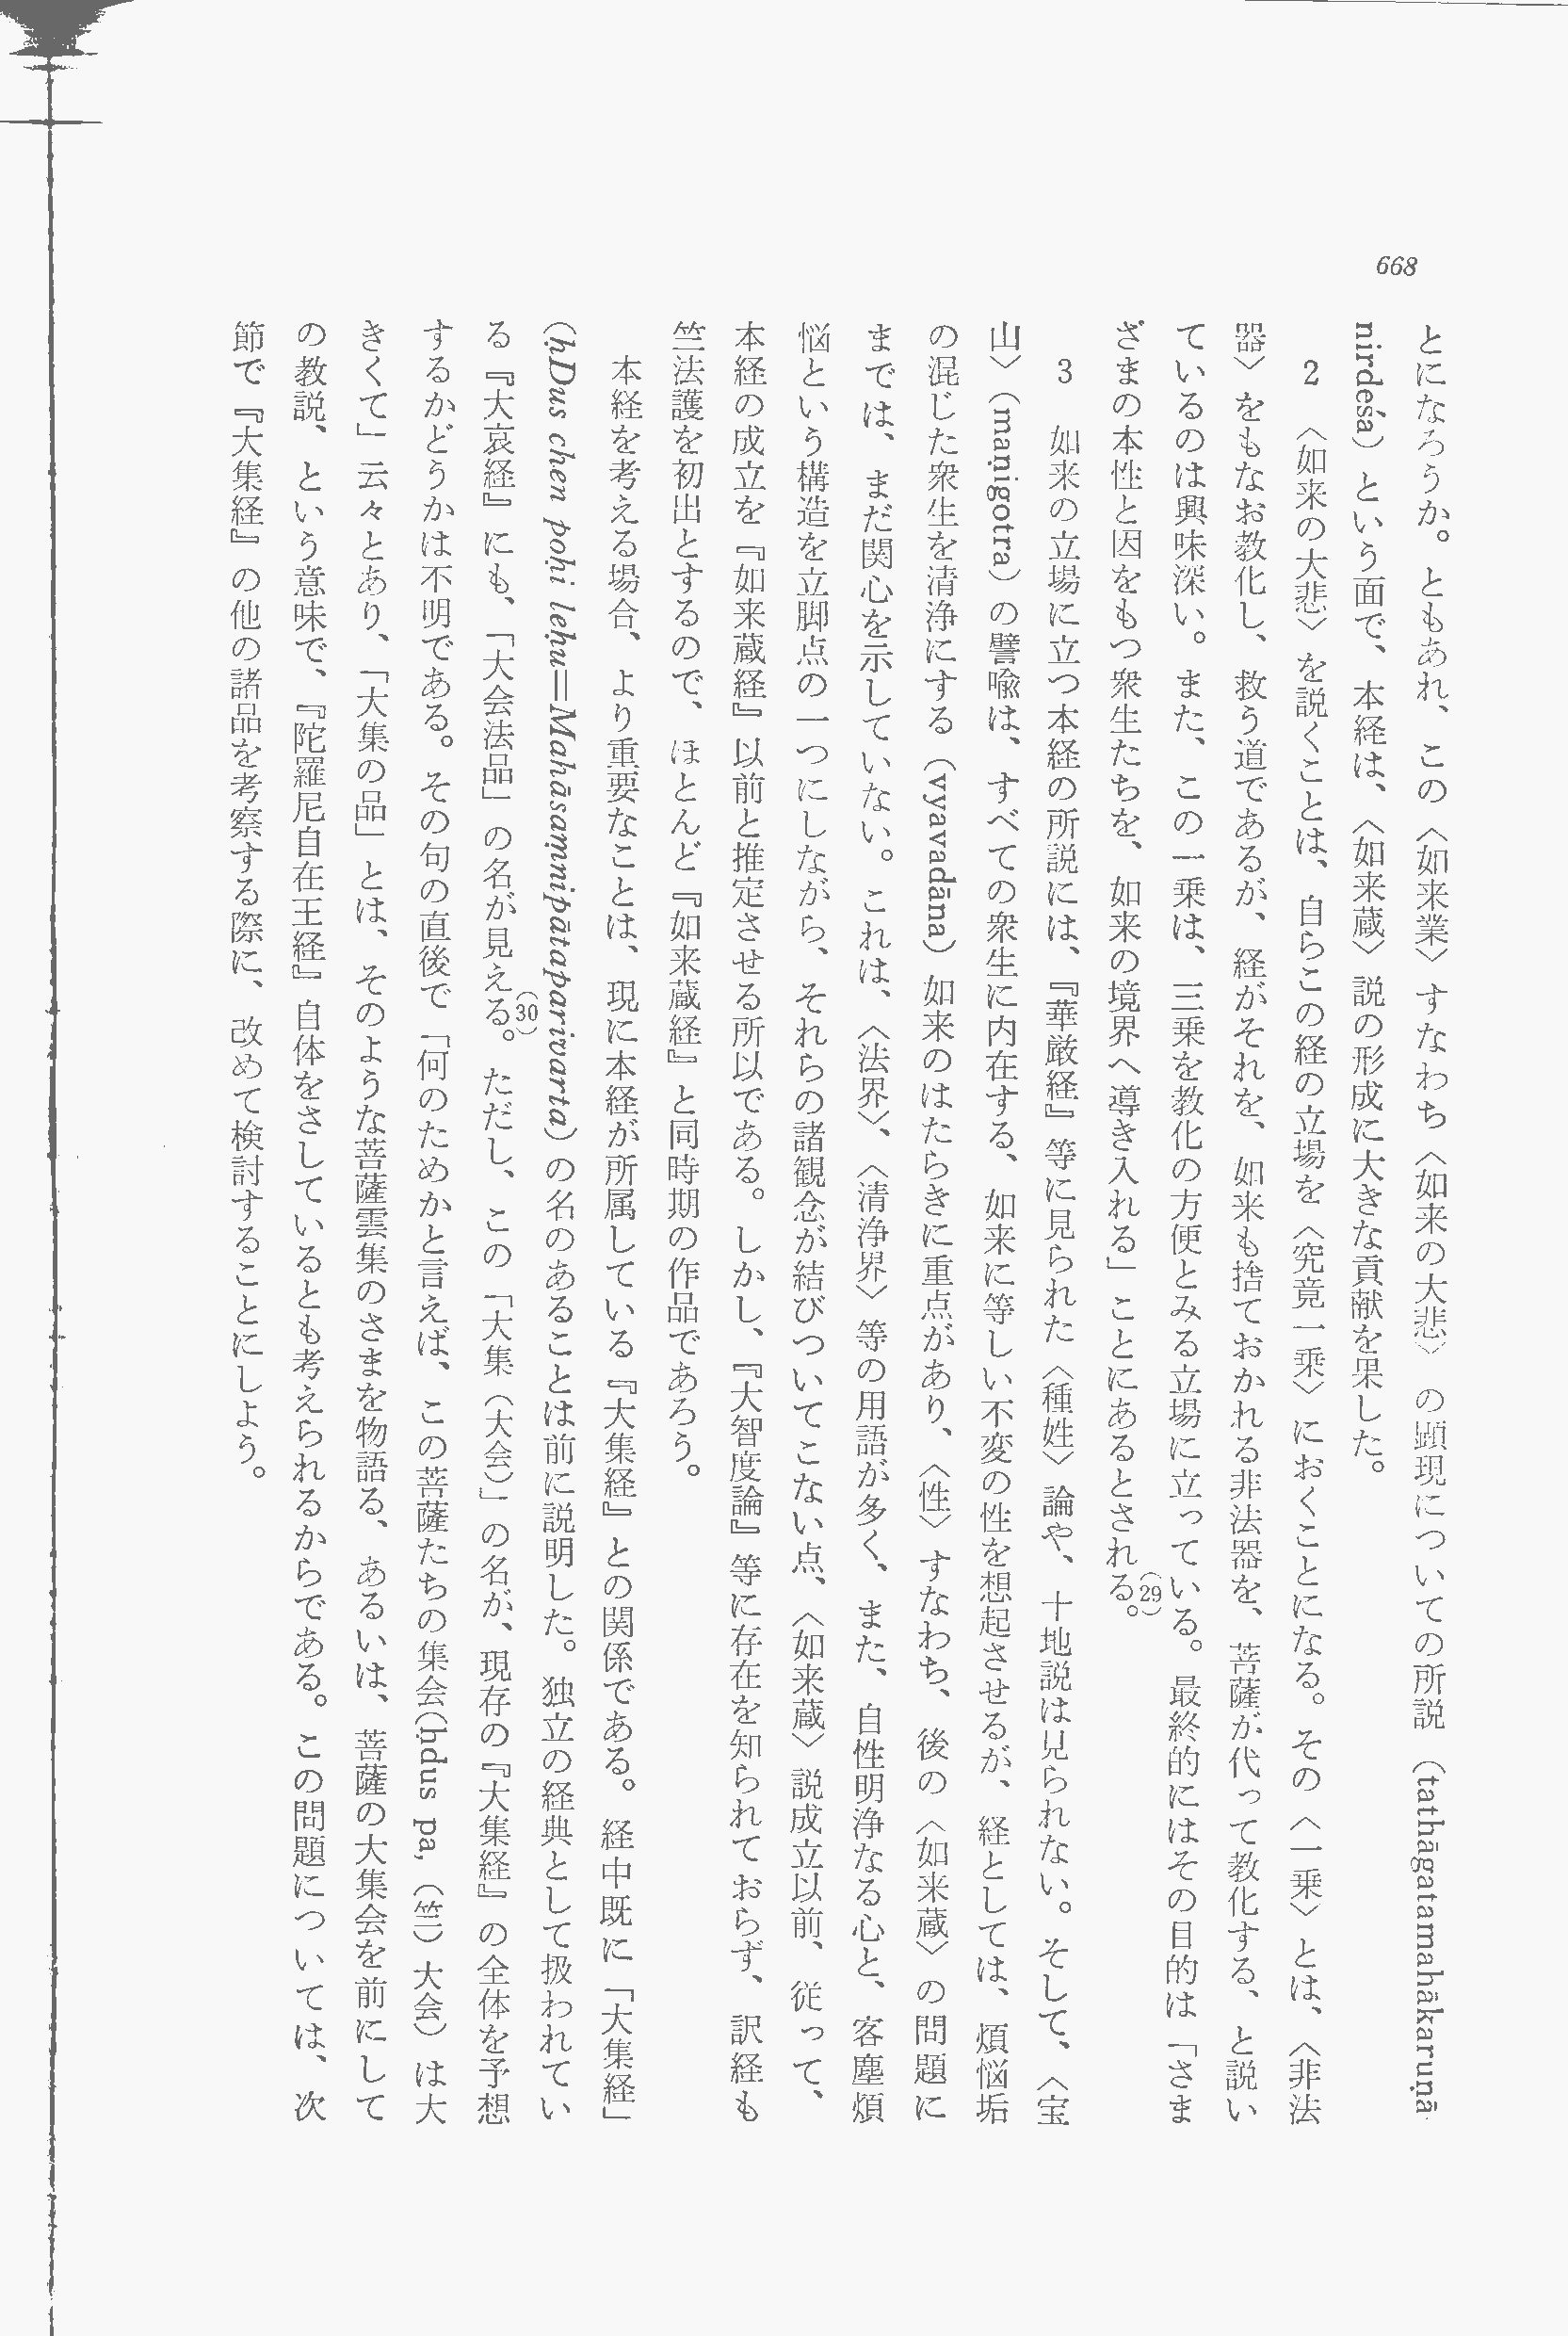 668
とになろうか。ともあれ、この〈如来業〉すなわち〈如来の大悲〉の顕現についての所説（tathāgatamahākaruṇā-
nirdeśa）という面で、本経は、〈如来蔵〉説の形成に大きな貢献を果した。
2　〈如来の大悲〉を説くことは、自らこの経の立場を〈究竟一乗〉におくことになる。その〈一乗〉とは、〈非法
器〉をもなお教化し、救う道であるが、経がそれを、如来も捨ておかれる非法器を、菩薩が代って教化する、と説い
ているのは興味深い。また、この一乗は、三乗を教化の方便とみる立場に立っている。最終的にはその目的は「さま
ざまの本性と因をもつ衆生たちを、如来の境界へ導き入れる」ことにあるとされる。（29）
3　如来の立場に立つ本経の所説には、『華厳経』等に見られた〈種姓〉論や、十地説は見られない。そして、〈宝
山〉（maṇigotra）の譬喩は、すべての衆生に内在する、如来に等しい不変の性を想起させるが、経としては、煩悩垢
の混じた衆生を清浄にする（vyavadāna）如来のはたらきに重点があり、〈性〉すなわち、後の〈如来蔵〉の問題に
までは、まだ関心を示していない。これは、〈法界〉、〈清浄界〉等の用語が多く、また、自性明浄なる心と、客塵煩
悩という構造を立脚点の一つにしながら、それらの諸観念が結びついてこない点、〈如来蔵〉説成立以前、従って、
本経の成立を『如来蔵経』以前と推定させる所以である。しかし、『大智度論』等に存在を知られておらず、訳経も
竺法護を初出とするので、ほとんど『如来蔵経』と同時期の作品であろう。
本経を考える場合、より重要なことは、現に本経が所属している『大集経』との関係である。経中既に「大集経」
（ḥDus chen poḥi leḥu＝Mahāsaṃnipātaparivarta）の名のあることは前に説明した。独立の経典として扱われてい
る『大哀経』にも、「大会法品」の名が見える。（30）ただし、この「大集（大会）」の名が、現存の『大集経』の全体を予想
するかどうかは不明である。その句の直後で「何のためかと言えば、この菩薩たちの集会（ḥdus pa,（竺）大会）は大
きくて」云々とあり、「大集の品」とは、そのような菩薩雲集のさまを物語る、あるいは、菩薩の大集会を前にして
の教説、という意味で、『陀羅尼自在王経』自体をさしているとも考えられるからである。この問題については、次
節で『大集経』の他の諸品を考察する際に、改めて検討することにしよう。